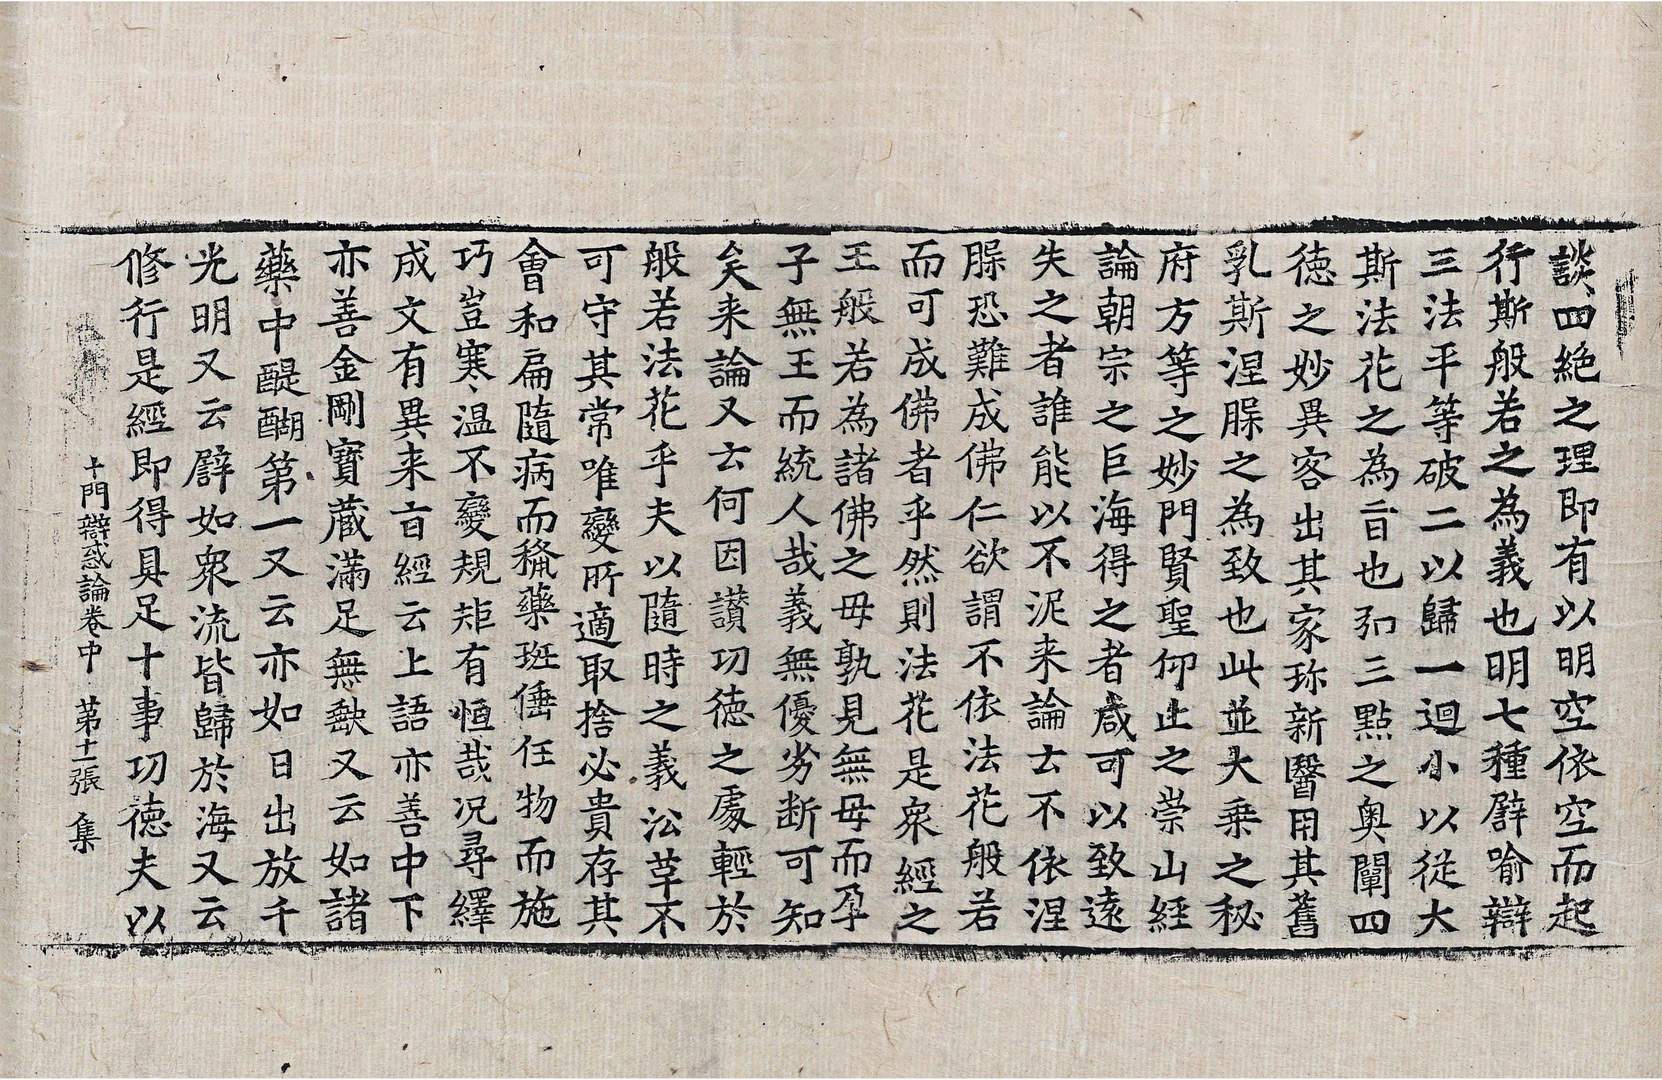 談四絶之理即有以明空依空而起
行斯般若之為義也明七種譬喻辯
三法平等破二以歸一迴小以從大
斯法花之為旨也弘三點之奥闡四
徳之妙異客出其家珎新醫用其舊
乳斯涅脲之為致也此並大乗之秘
府方等之妙門賢聖仰止之崇山經
論朝宗之巨海得之者咸可以致遠
失之者誰能以不泥来論云不依涅
脲恐難成佛仁欲謂不依法花般若
而可成佛者乎然則法花是衆經之
王般若為諸佛之母孰見無母而孕
子無王而統人哉義無優劣断可知
矣来論又云何因讃功徳之處輕於
般若法花乎夫以隨時之義沿革不
可守其常唯變所適取捨必貴存其
會和扁隨病而㮣藥班倕任物而施
巧豈寒温不變規矩有恒哉况尋繹
成文有異来旨經云上語亦善中下
亦善金剛寶蔵滿足無缺又云如諸
藥中醍醐第一又云亦如日出放千
光明又云譬如衆流皆歸於海又云
修行是經即得具足十事功徳夫以
十門辯惑論卷中 第十一張 集